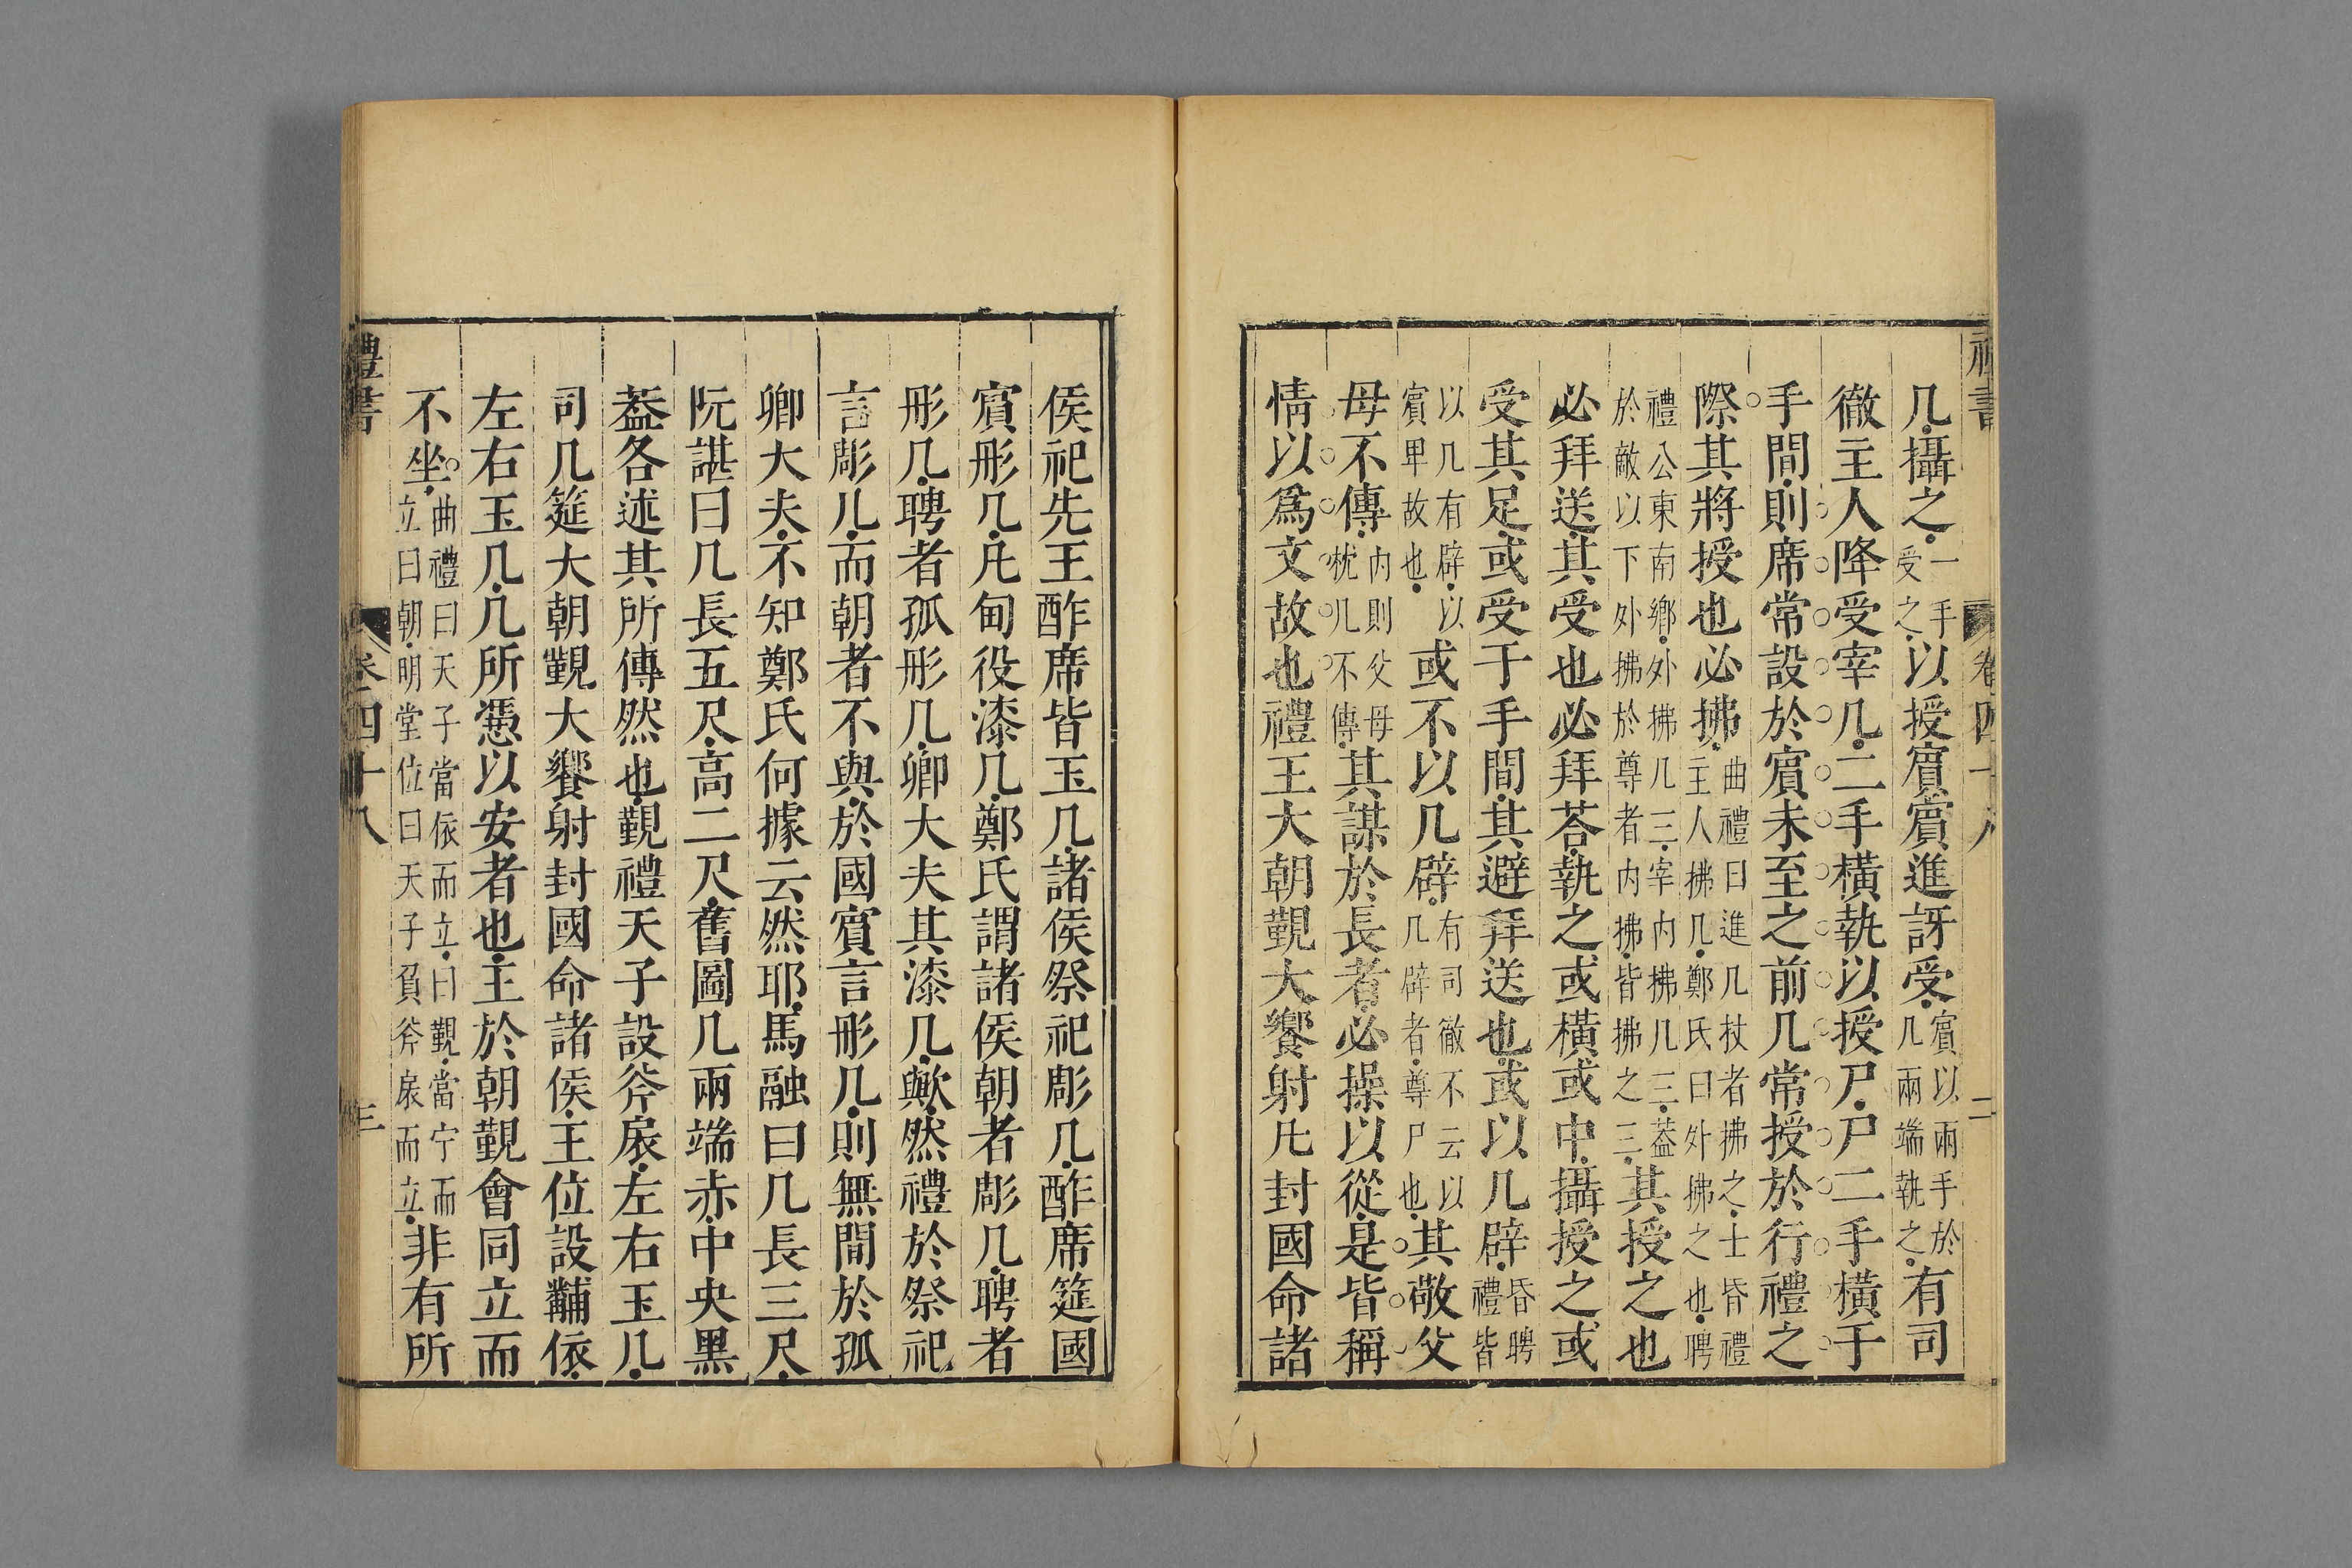 禮書 卷四十八 二
几攝之一手受之以授賓賓進訝受賓以兩手於几兩端執之有司
徹主人降受宰几二手橫執以授尸尸二手橫于
手間則席常設於賓未至之前几常授於行禮之
際其將授也必拂曲禮曰進几杖者拂之士昏禮主人拂几鄭氏曰外拂之也聘
禮公東南鄉外拂几三宰內拂几三葢於敵以下外拂於尊者內拂皆拂之三其授之也
必拜送其受也必拜荅執之或橫或中攝授之或
受其足或受于手間其避拜送也或以几辟昏聘禮皆
以几有辟以賓卑故也或不以几辟有司徹不云以几辟者尊尸也其敬父
母不傳內則父母枕几不傳其謀於長者必操以從是皆稱
情以爲文故也禮王大朝覲大饗射凡封國命諸
侯祀先王酢席皆玉几諸侯祭祀彫几酢席筵國
賓彤几凡甸役漆几鄭氏謂諸侯朝者彫几聘者
彤几聘者孤彤几卿大夫其漆几歟然禮於祭祀
言彫几而朝者不與於國賓言彤几則無間於孤
卿大夫不知鄭氏何據云然耶馬融曰几長三尺
阮諶曰几長五尺高二尺舊圖几兩端赤中央黑
葢各述其所傳然也覲禮天子設斧扆左右玉几
司几筵大朝覲大饗射封國命諸侯王位設黼依
左右玉几几所憑以安者也王於朝覲會同立而
不坐曲禮曰天子當依而立曰覲當宁而立曰朝明堂位曰天子負斧扆而立非有所
禮書 卷四十八 三